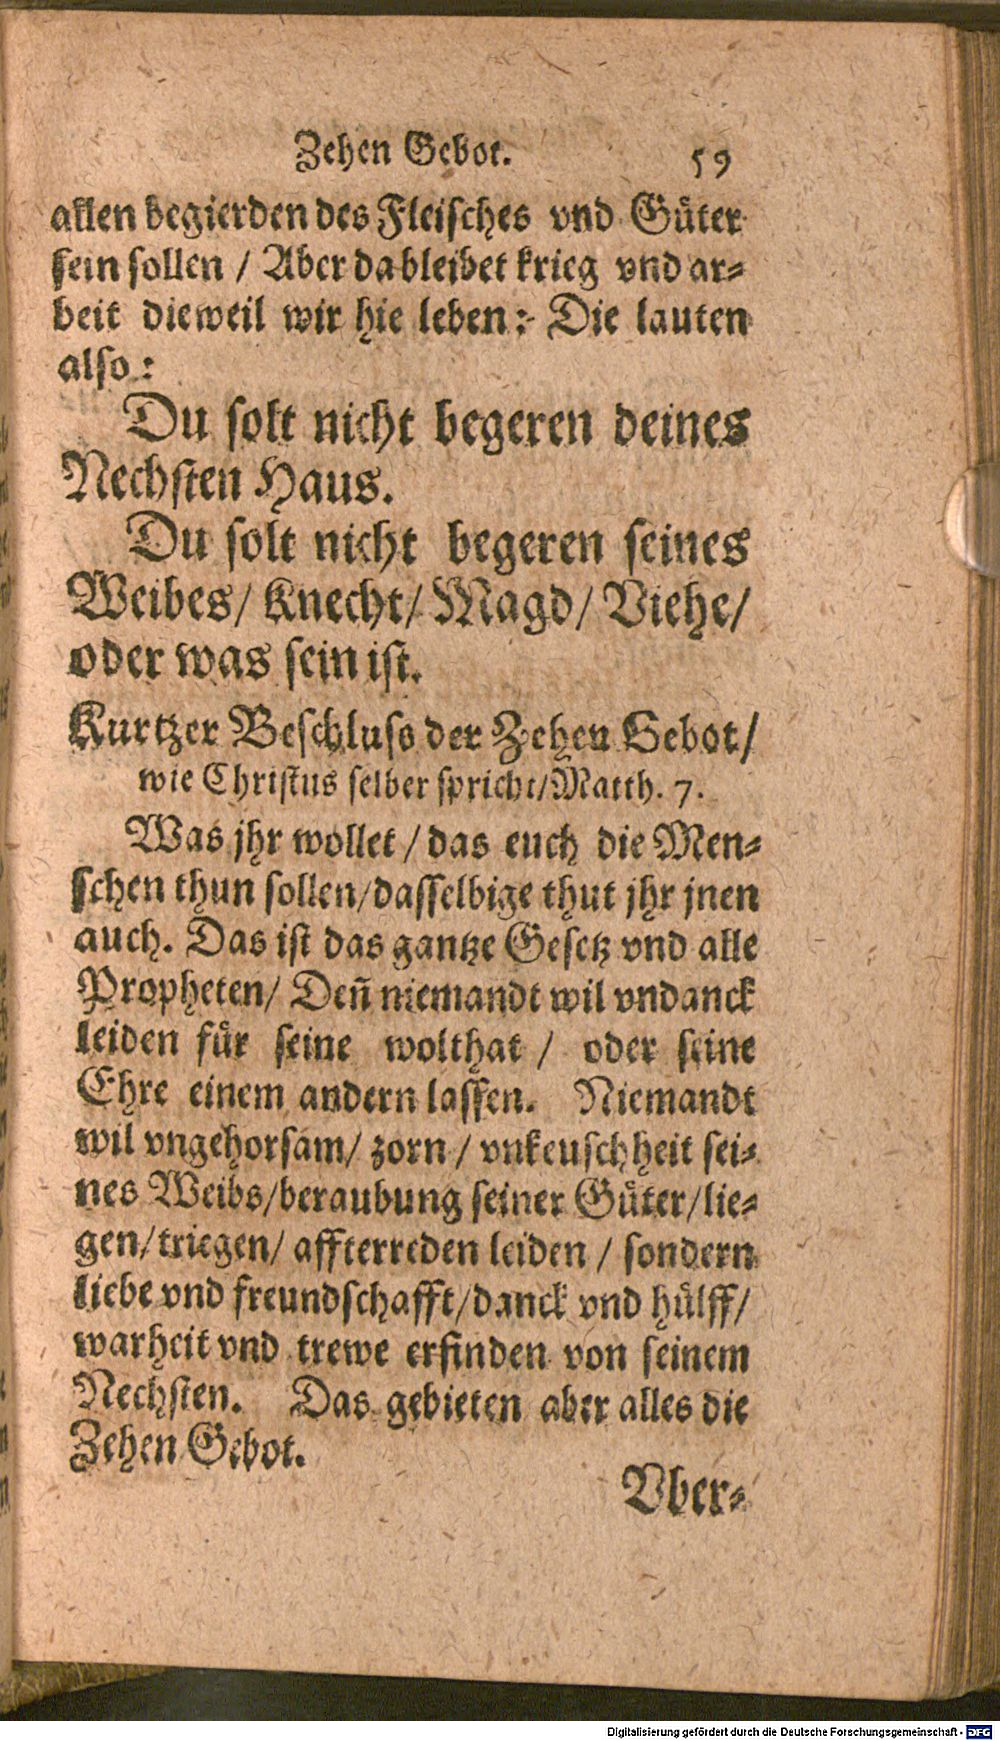 Zehen Gebot. 59
allen begierden des Fleisches vnd Güter
sein sollen / Aber da bleibet krieg vnd ar⸗
beit dieweil wir hie leben: Die lauten
also:
Du solt nicht begeren deines
Nechsten Haus.
Du solt nicht begeren seines
Weibes/ Knecht/ Magd/ Viehe/
oder was sein ist.
Kurtzer Beschluss der Zehen Gebot/
wie Christus selber spricht/Matth. 7.
Was jhr wollet / das euch die Men⸗
schen thun sollen/dasselbige thut jhr jnen
auch. Das ist das gantze Gesetz vnd alle
Propheten/ Deñ niemandt wil vndanck
leiden für seine wolthat / oder seine
Ehre einem andern lassen. Niemandt
wil vngehorsam/ zorn / vnkeuschheit sei⸗
nes Weibs/beraubung seiner Güter/lie⸗
gen/triegen/ affterreden leiden / sondern
liebe vnd freundschafft/danck vnd hülff/
warheit vnd trewe erfinden von seinem
Nechsten. Das gebieten aber alles die
Zehen Gebot.
Vber⸗
Digitalisierung gefördert durch die Deutsche Forschungsgemeinschaft - DFG